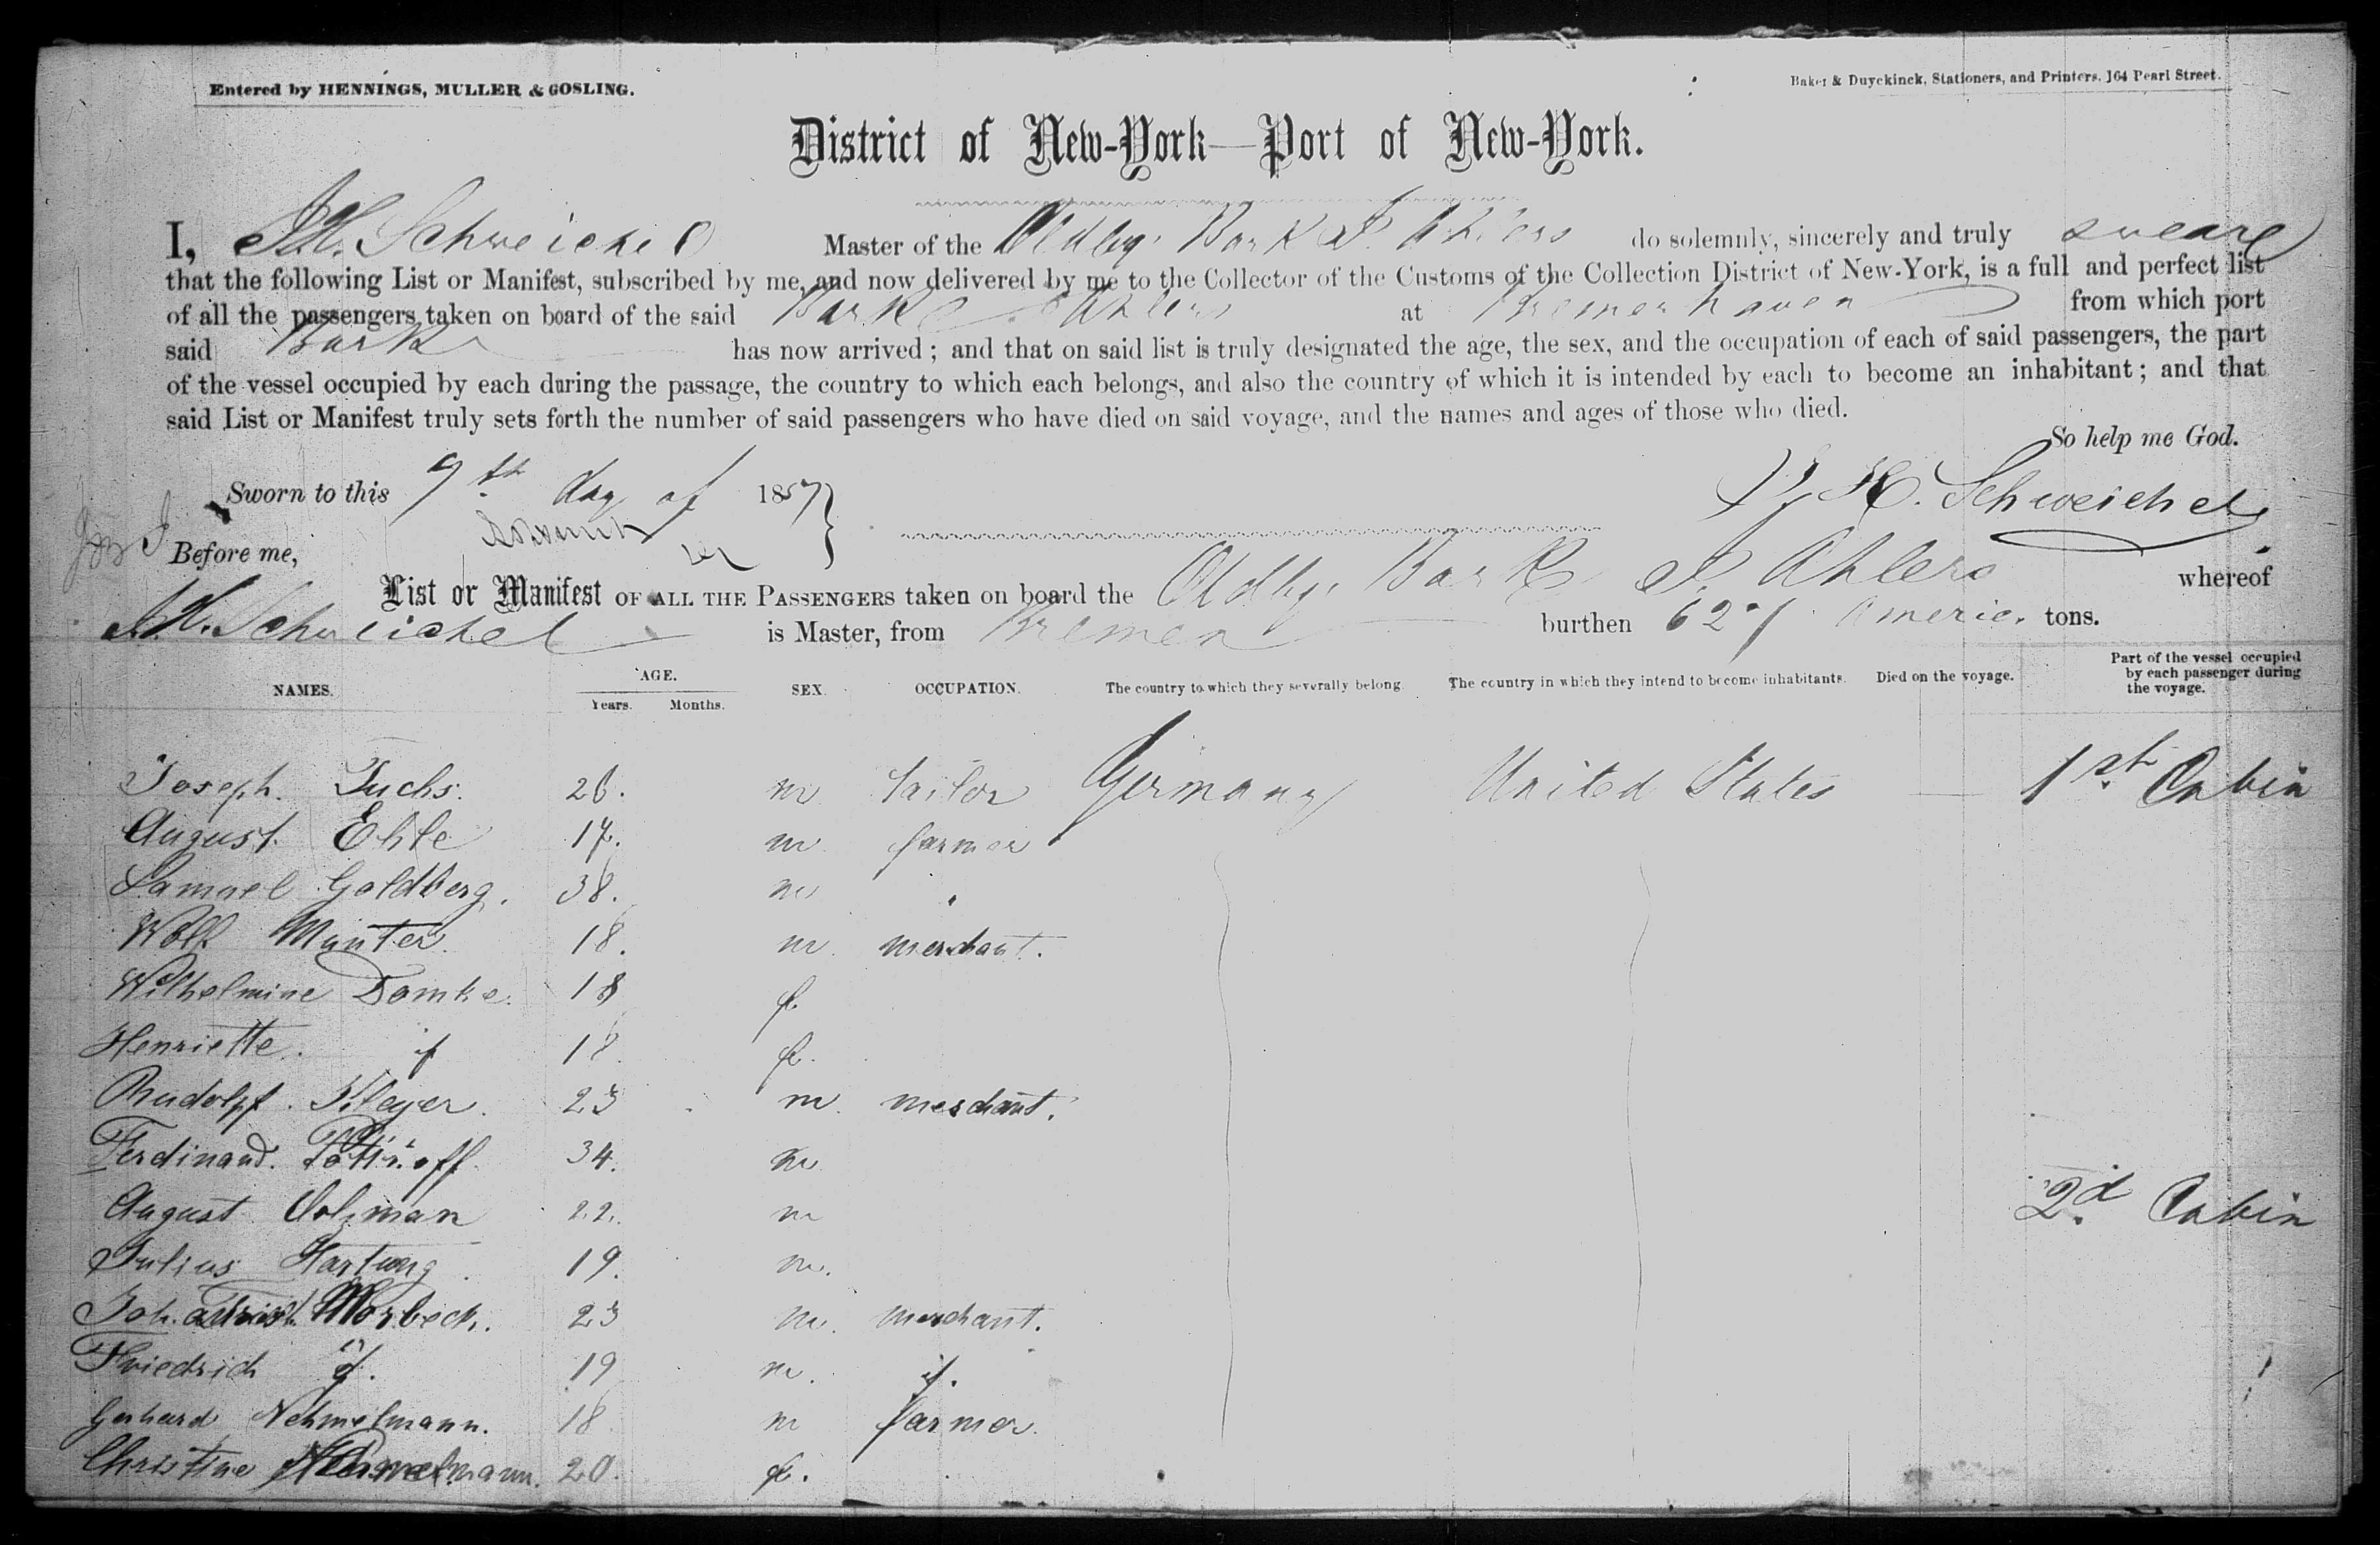 Entered by HENNINGS, MULLER & GOSLING.
Baker & Duyckinck, Stationers, and Printers. 164 Pearl Street.
District of New-York—Port of New-York.
I, J.H. Schweichel Master of the Oldbg. Bark J. Ahlers do solemnly, sincerely and truly sweare
that the following List or Manifest, subscribed by me, and now delivered by me to the Collector of the Customs of the Collection District of New-York, is a full and perfect list
of all the passengers taken on board of the said Bark J Ahlers at Bremerhaven from which port
said Bark has now arrived; and that on said list is truly designated the age, the sex, and the occupation of each of said passengers, the part
of the vessel occupied by each during the passage, the country to which each belongs, and also the country of which it is intended by each to become an inhabitant; and that
said List or Manifest truly sets forth the number of said passengers who have died on said voyage, and the names and ages of those who died.
So help me God.
Sworn to this 9th day of 1857 } H. Schweichel
Before me,
List or Manifest OF ALL THE PASSENGERS taken on board the Oldbg. Bark J. Ahlers whereof
J.H. Schweichel is Master, from Bremen burthen 627 Americ. tons.
NAMES. AGE. Years. Months. SEX. OCCUPATION. The country to which they severally belong. The country in which they intend to become inhabitants. Died on the voyage. Part of the vessel occupied by each passenger during the voyage.
Joseph. Fuchs. 26. m tailor Germany United States 1st Cabin
August. Ehle 17. m. farmer
Samuel Goldberg. 38. m "
Wolf Munter. 18. m. merchant.
Wilhelmine Domke. 18 f.
Henriette. " 18. f.
Rudolpf. Kleyer. 23 m. merchant.
Ferdinand. 34. m
August Volzman 22. m 2d Cabin
Julius Hartung. 19. m.
Joh. Morbeck. 23 m. merchant.
Friedrich " 19 m. "
Gerhard Nehmelmann. 18 m farmer.
Christine 20. f.